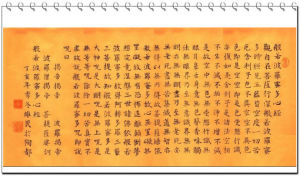 般若波羅蜜多心經
觀自在菩薩行深般若波羅蜜
多時照見五蘊皆空度一切苦
厄舍利子色不異空空不異色
色即是空空即是色受想行識
亦復如是舍利子是諸法空相
不生不滅不垢不淨不增不減
是故空中無色無受想行識無
眼耳鼻舌身意無色聲香味觸
法無眼界乃至無意識界無無
明亦無無明盡乃至無老死亦
無老死盡無苦集滅道無智亦
無得以無所得故菩提薩埵依
般若波羅蜜多故心無罣礙無
罣礙故無有恐怖遠離顛倒夢
想究竟涅槃三世諸佛依般若
波羅蜜多故得阿耨多羅三藐
三菩提故知般若波羅蜜多是
大神咒是大明咒是無上咒是
無等等咒能除一切苦真實不
虛故說般若波羅蜜多咒即說
咒曰
揭帝揭帝 波羅揭帝
波羅僧揭帝 菩提薩婆訶
般若波羅蜜多心經
丁亥年冬 於陶都